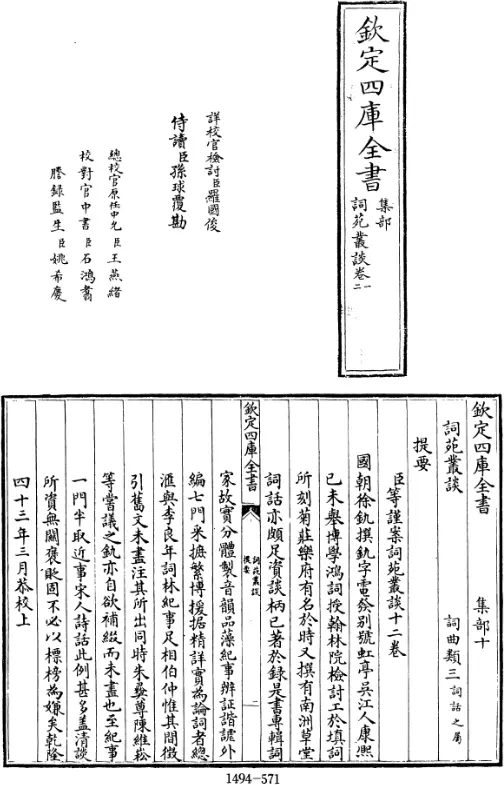 欽定四庫全書
集部
詞苑叢談卷一二
詳校官檢討臣羅國俊
侍讀臣孫球覆勘
總校官原任中允臣王燕緒
校對官中書臣石鴻翥
謄錄監生臣姚希慶
欽定四庫全書 集部十
詞苑叢談 詞曲類三詞話之屬
提要
臣等謹案詞苑叢談十二卷
國朝徐釚撰釚字電發别號虹亭吳江人康熙
己未舉博學鴻詞授翰林院檢討工於填詞
所刻菊莊樂府有名於時又撰有南洲草堂
詞話亦頗足資談柄已著於録是書專輯詞
欽定四庫全書
詞苑叢談
提要
一
家故實分體製音韻品藻紀事辨証諧謔外
編七門采摭繁博援据精詳實為論詞者總
滙與李良年詞林紀事足相伯仲惟其間徵
引舊文未盡注其所出同時朱彝尊陳維崧
等嘗議之釚亦自欲補綴而未盡也至紀事
一門半取近事宋人詩話此例甚多蓋清談
所資無關褒貶固不必以標榜為嫌矣乾隆
四十三年三月恭校上
1494-571